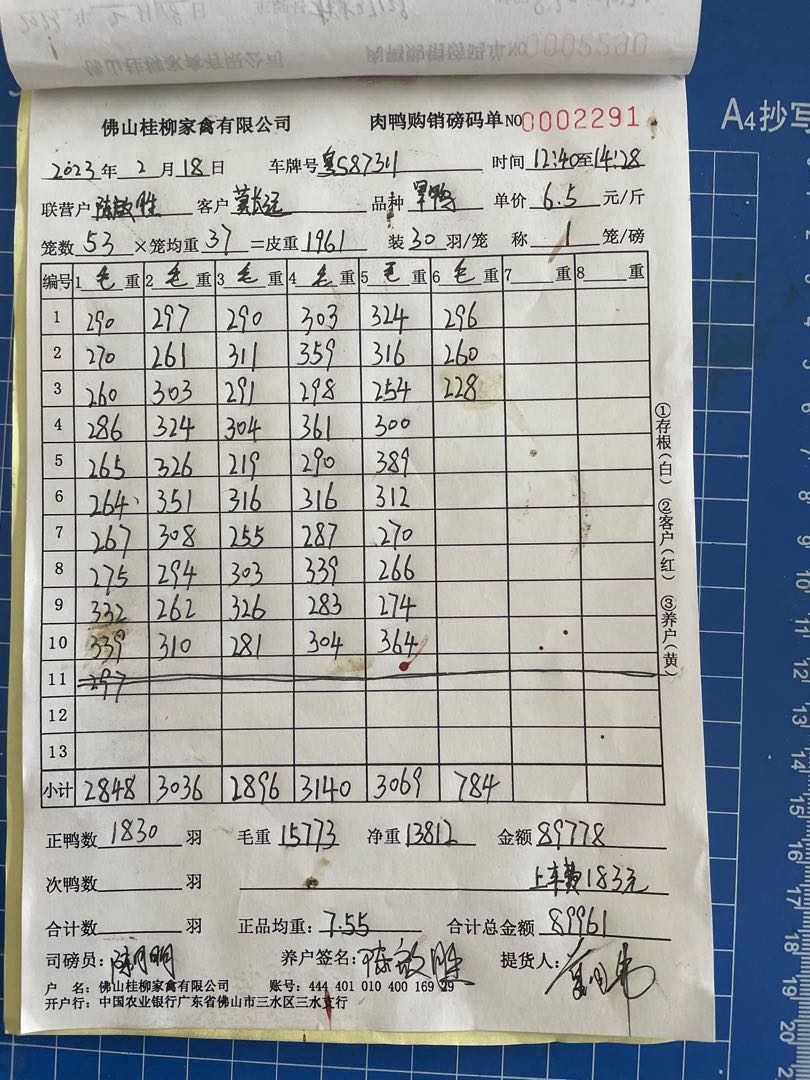 佛山桂柳家禽有限公司 肉鸭购销磅码单 NO 0002290
佛山桂柳家禽有限公司 肉鸭购销磅码单 NO 0002291
2023年 2月18日 车牌号 粤S8731J 时间 12:40至14:28
联营户 陈敏胜 客户 品种 旱鸭 单价 6.5 元/斤
笼数 53 ×笼均重 37 =皮重 1961 装 30 羽/笼 称 1 笼/磅
编号 1 毛 重 2 毛 重 3 毛 重 4 毛 重 5 毛 重 6 毛 重 7 重 8 重
1 290 297 290 303 324 296
2 270 261 311 359 316 260
3 260 303 291 298 254 228
4 286 324 304 361 300
5 265 326 219 290 389
6 264 351 316 316 312
7 267 308 255 287 270
8 275 294 303 339 266
9 332 262 326 283 274
10 339 310 281 304 364
11 297
12
13
小计 2848 3036 2896 3140 3069 784
正鸭数 1830 羽 毛重 15773 净重 13812 金额 89778
次鸭数 羽 上车费183元
合计数 羽 正品均重: 7.55 合计总金额 89961
司磅员: 养户签名: 陈敏胜 提货人:
户 名: 佛山桂柳家禽有限公司 账号: 444 401 010 400 169 29
开户行: 中国农业银行广东省佛山市三水区三水支行
①存根(白) ②客户(红) ③养户(黄)
A4抄写
2
3
4
5
6
7
8
9
10
11
12
13
14
15
16
17
18
19
20